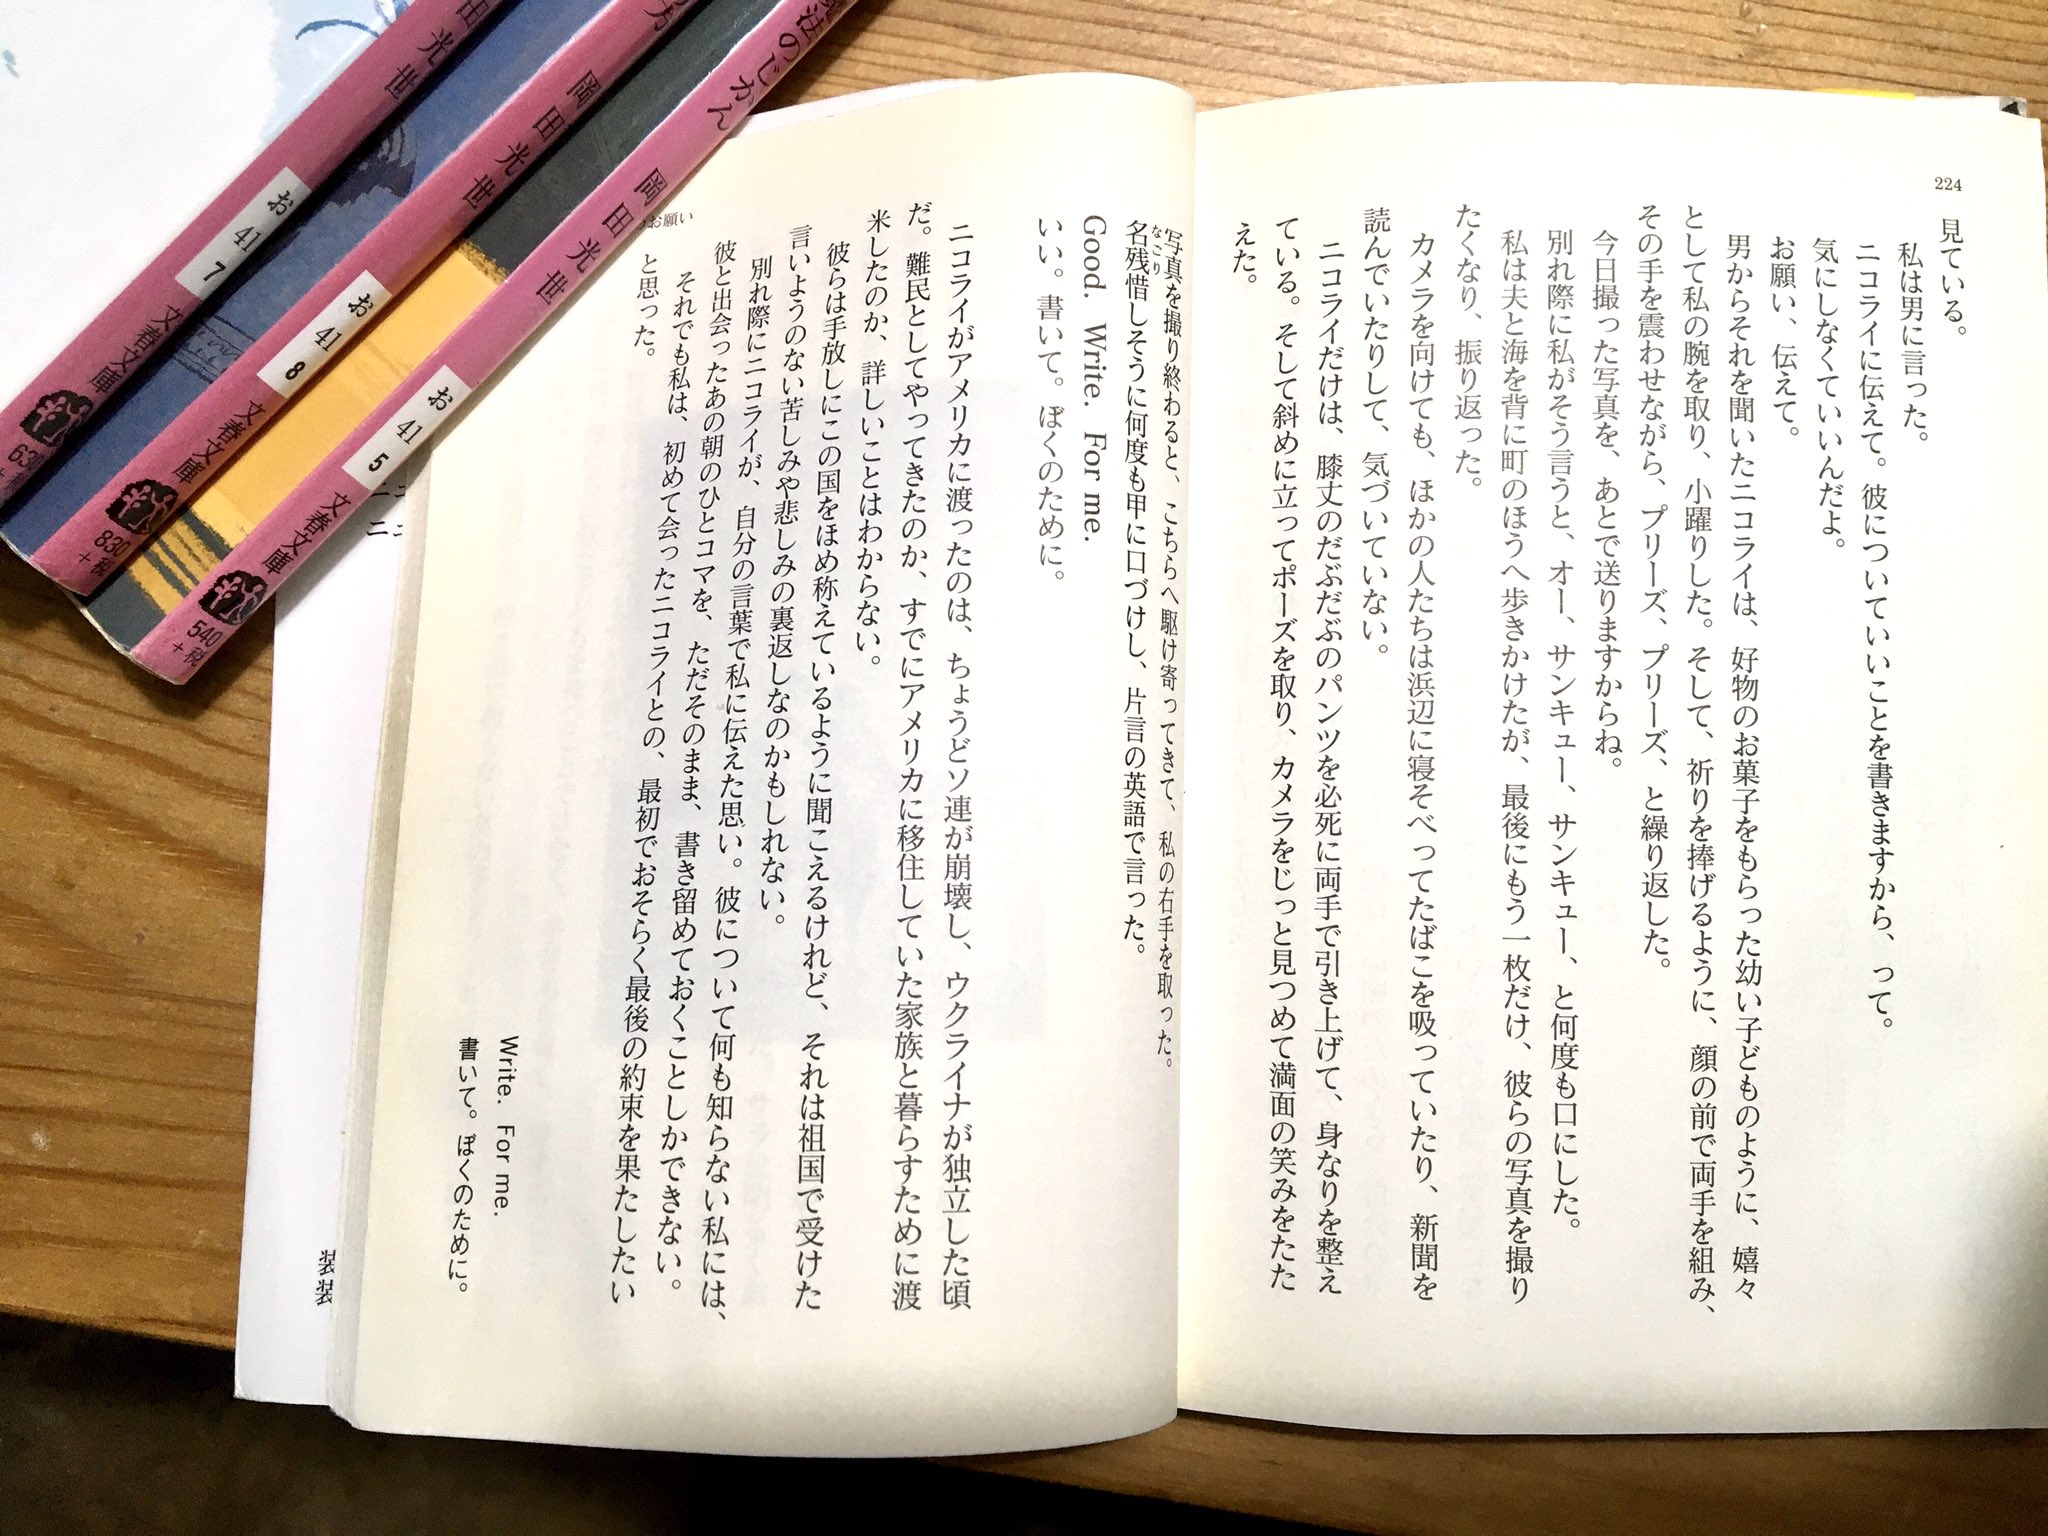 224
見ている。
私は男に言った。
ニコライに伝えて。彼についていいことを書きますから、って。
気にしなくていいんだよ。
お願い、伝えて。
男からそれを聞いたニコライは、好物のお菓子をもらった幼い子どものように、嬉々
として私の腕を取り、小躍りした。そして、祈りを捧げるように、顔の前で両手を組み、
その手を震わせながら、プリーズ、プリーズ、と繰り返した。
今日撮った写真を、あとで送りますからね。
別れ際に私がそう言うと、オー、サンキュー、サンキュー、と何度も口にした。
私は夫と海を背に町のほうへ歩きかけたが、最後にもう一枚だけ、彼らの写真を撮り
たくなり、振り返った。
カメラを向けても、ほかの人たちは浜辺に寝そべってたばこを吸っていたり、新聞を
読んでいたりして、気づいていない。
ニコライだけは、膝丈のだぶだぶのパンツを必死に両手で引き上げて、身なりを整え
ている。そして斜めに立ってポーズを取り、カメラをじっと見つめて満面の笑みをたた
えた。
写真を撮り終わると、こちらへ駆け寄ってきて、私の右手を取った。
名残惜しそうに何度も甲に口づけし、片言の英語で言った。
なごり
Good. Write. For me.
いい。書いて。ぼくのために。
ニコライがアメリカに渡ったのは、ちょうどソ連が崩壊し、ウクライナが独立した頃
だ。難民としてやってきたのか、すでにアメリカに移住していた家族と暮らすために渡
米したのか、詳しいことはわからない。
彼らは手放しにこの国をほめ称えているように聞こえるけれど、それは祖国で受けた
言いようのない苦しみや悲しみの裏返しなのかもしれない。
別れ際にニコライが、自分の言葉で私に伝えた思い。彼について何も知らない私には、
彼と出会ったあの朝のひとコマを、ただそのまま、書き留めておくことしかできない。
それでも私は、初めて会ったニコライとの、最初でおそらく最後の約束を果たしたい
と思った。
Write. For me.
書いて。ぼくのために。
お願い
田光世
お
41
7
文春文庫
630
方
岡田光世
お
41
8
文春文庫
830
+税
魔法のじかん
岡田光世
お
41
5
文春文庫
540
+税
装
装